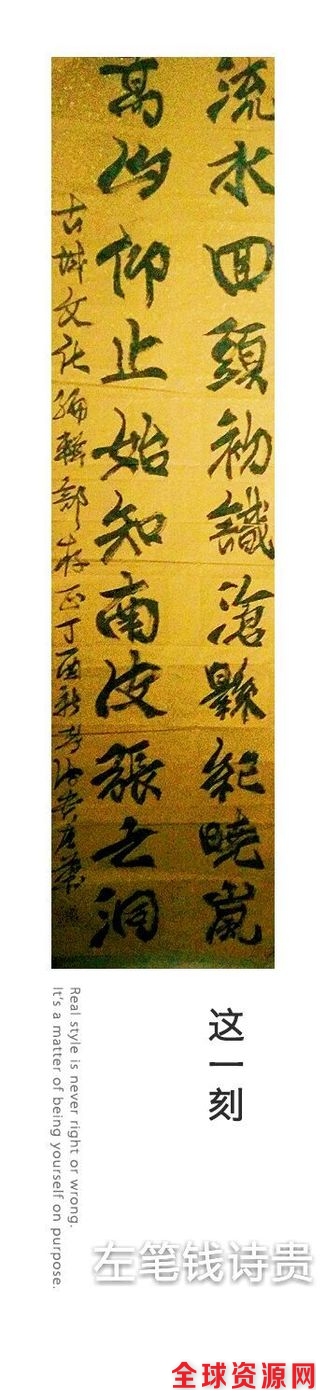 流水回頭初識滄縣紀曉嵐
高山仰止始知南皮張之洞
古城文化編輯部存正丁酉秋
这一刻
Real style is never right or wrong.
It's a matter of being yourself on purpose.
左笔钱诗贵
全球资源网